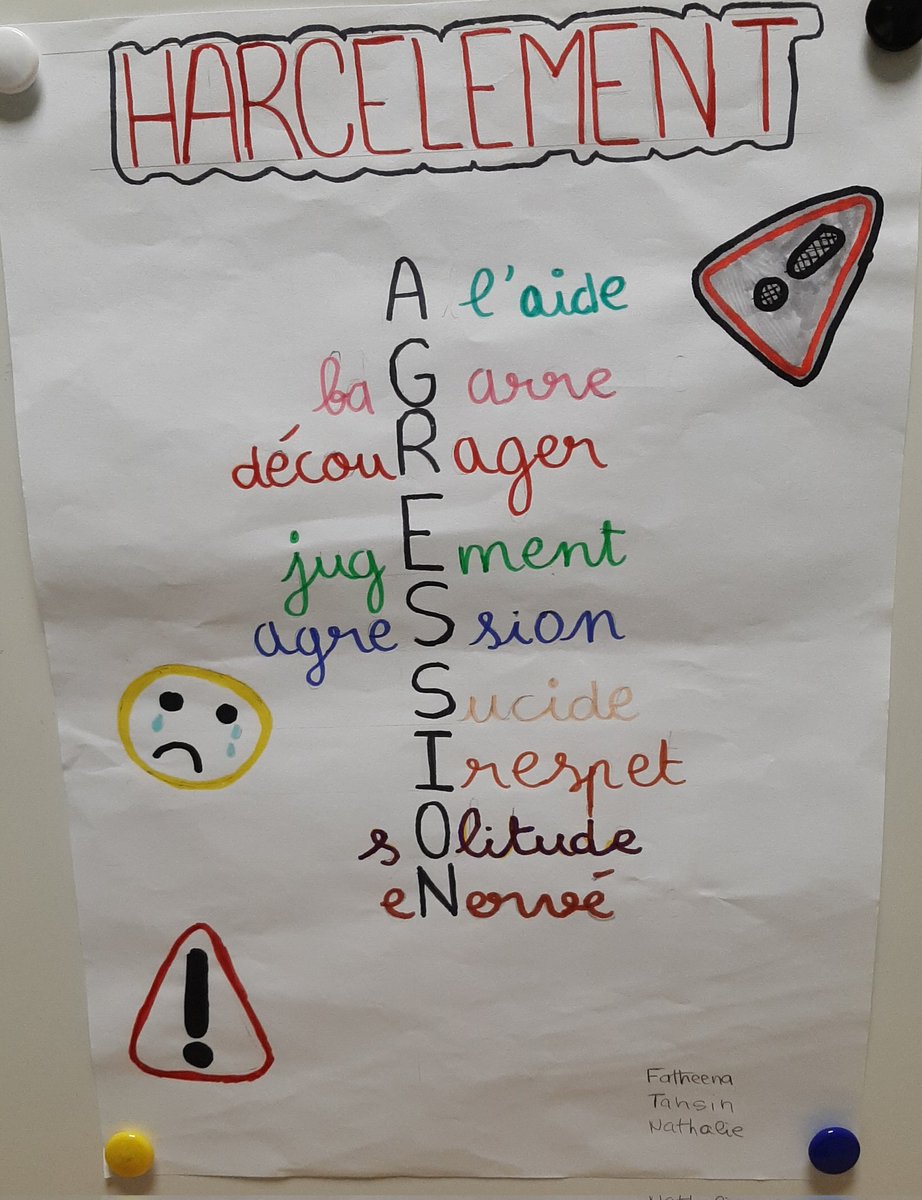 HARCELEMENT
A l'aide
baGarre
découRager
jugEment
agreSsion
Sucide
Irespet
sOlitude
eNervé
Fatheena
Tahsin
Nathalie